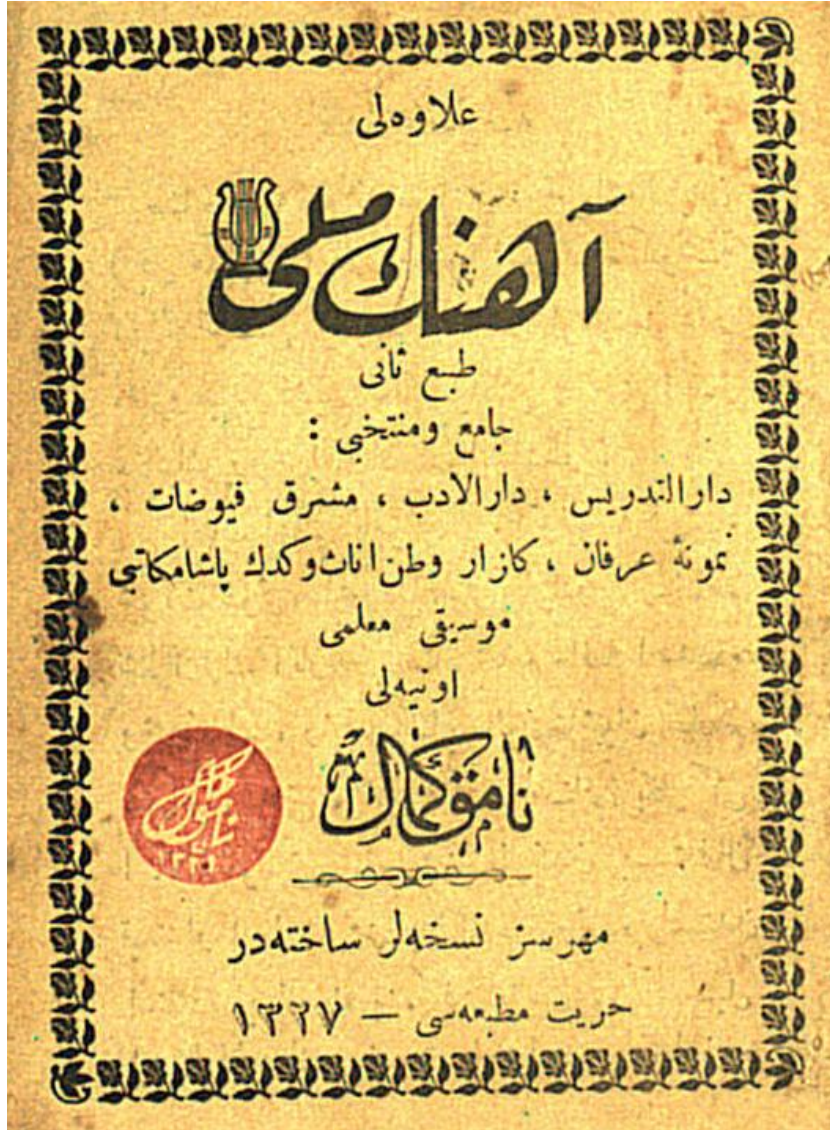 علاوه‌لی
آهنك ملی
طبع ثانی
جامع ومنتخبی :
دارالتدریس ، دارالادب ، مشرق فیوضات ،
نمونهٔ عرفان ، كلزار وطن اناث وكدك پاشا مكاتبی
موسیقی معلمی
اونیه‌لی
نامق كمال
مهرسز نسخه‌لر ساخته‌در
حریت مطبعه‌سی — ١٣٢٧